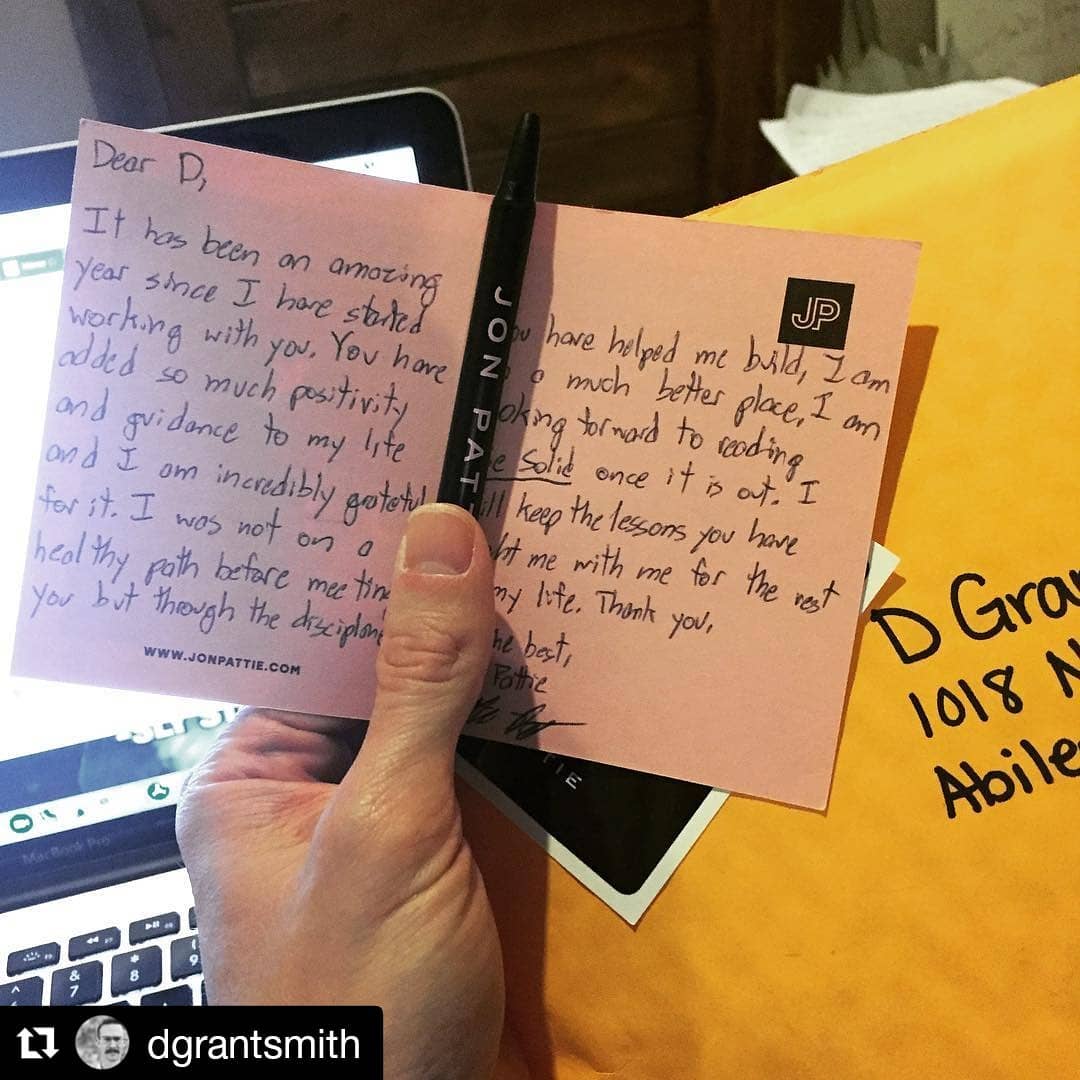 Dear D,
It has been an amazing
year since I have started
working with you. You have
added so much positivity
and guidance to my life
and I am incredibly grateful
for it. I was not on a
healthy path before
you but through the
WWW.JONPATTIE.COM
JP
have helped me build, I am
a much better place. I am
forward to reading
Solid once it is out. I
keep the lessons you have
me with me for the rest
my life. Thank you,
best,
Pattie
JON PAT
TIE
D Gra
1018 N
Abile
MacBook Pro
&
7
*
8
9
dgrantsmith